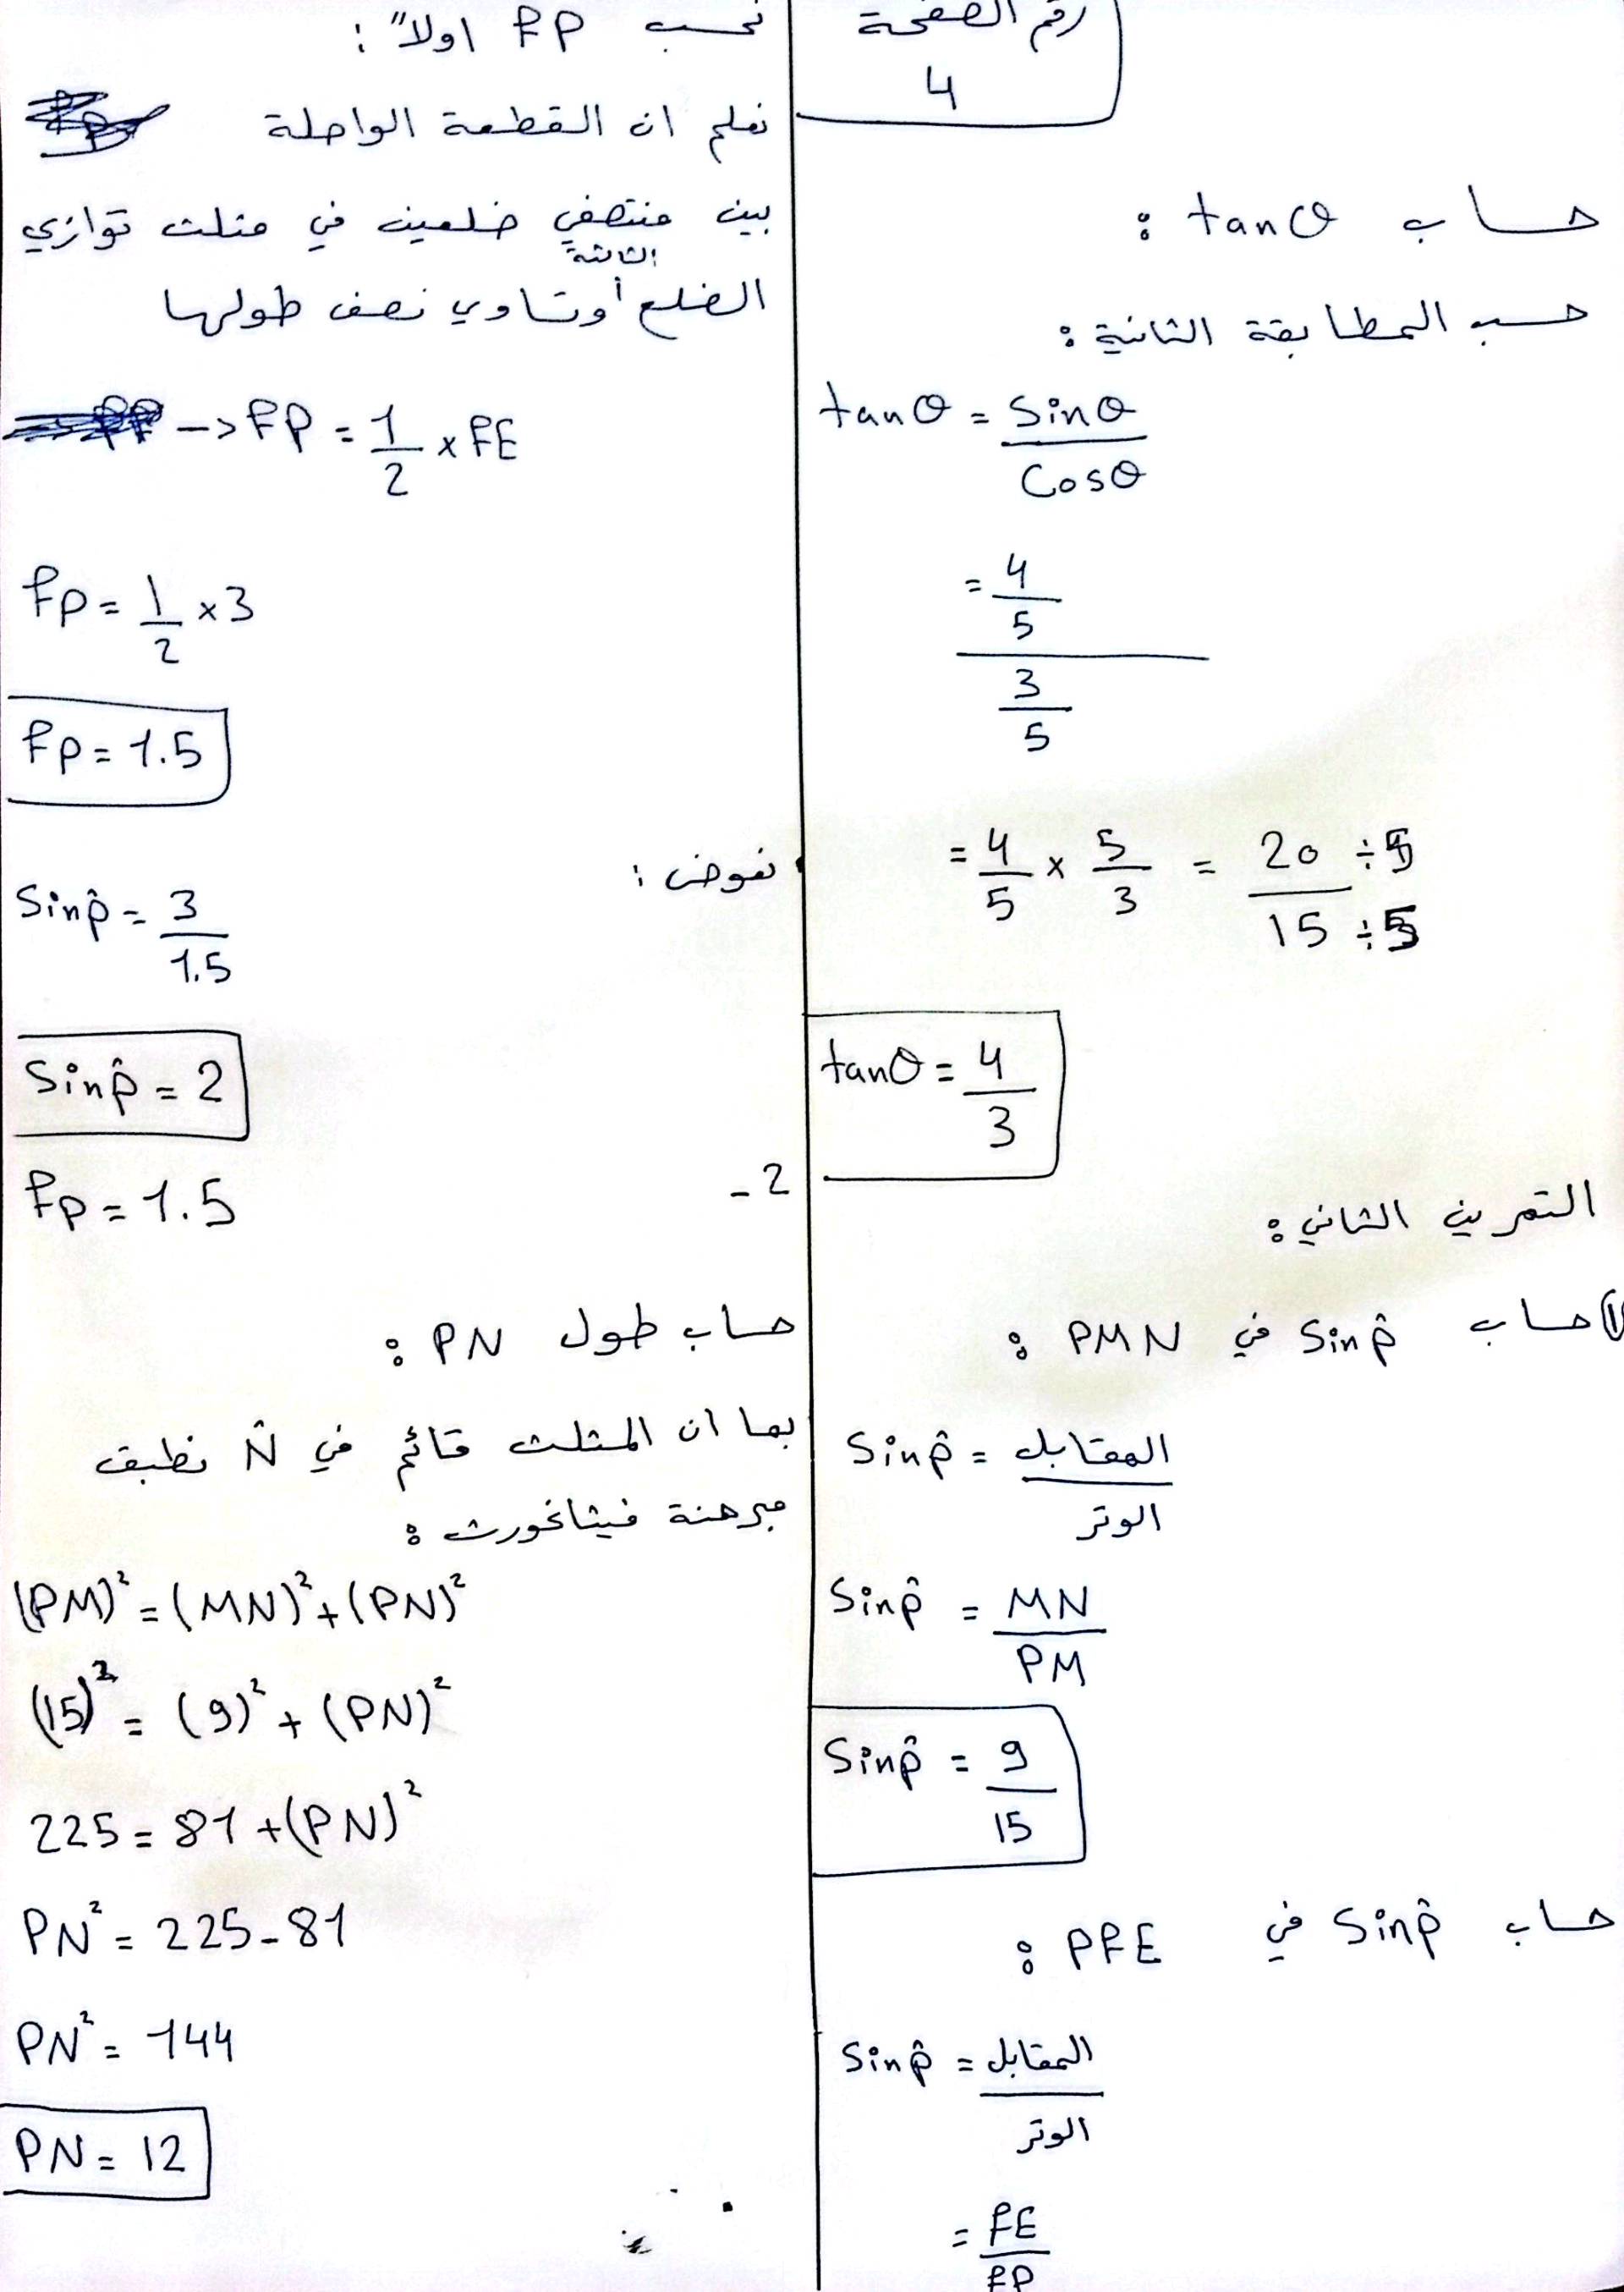 رقم الصفحة
4
حساب tanθ :
حسب المطابقة الثانية :
tanθ = sinθ
Cosθ
= 4
5
3
5
= 4/5 × 5/3 = 20 ÷5 / 15 ÷5
tanθ = 4/3
التمرين الثاني :
1) حساب Sin p̂ في PMN :
Sin p̂ = المقابل
الوتر
Sin p̂ = MN
PM
Sin p̂ = 9
15
حساب Sin p̂ في PFE :
Sin p̂ = المقابل
الوتر
= FE
FP
نحسب FP اولاً :
نعلم ان القطعة الواصلة
بين منتصفي ضلعين في مثلث توازي
الضلع الثالثة وتساوي نصف طولها
-> FP = 1/2 × FE
FP = 1/2 × 3
FP = 1.5
نعوض :
Sin p̂ = 3
1.5
Sin p̂ = 2
2 -
FP = 1.5
حساب طول PN :
بما ان المثلث قائم في N̂ نطبق
مبرهنة فيثاغورث :
(PM)² = (MN)² + (PN)²
(15)² = (9)² + (PN)²
225 = 81 + (PN)²
PN² = 225 - 81
PN² = 144
PN = 12